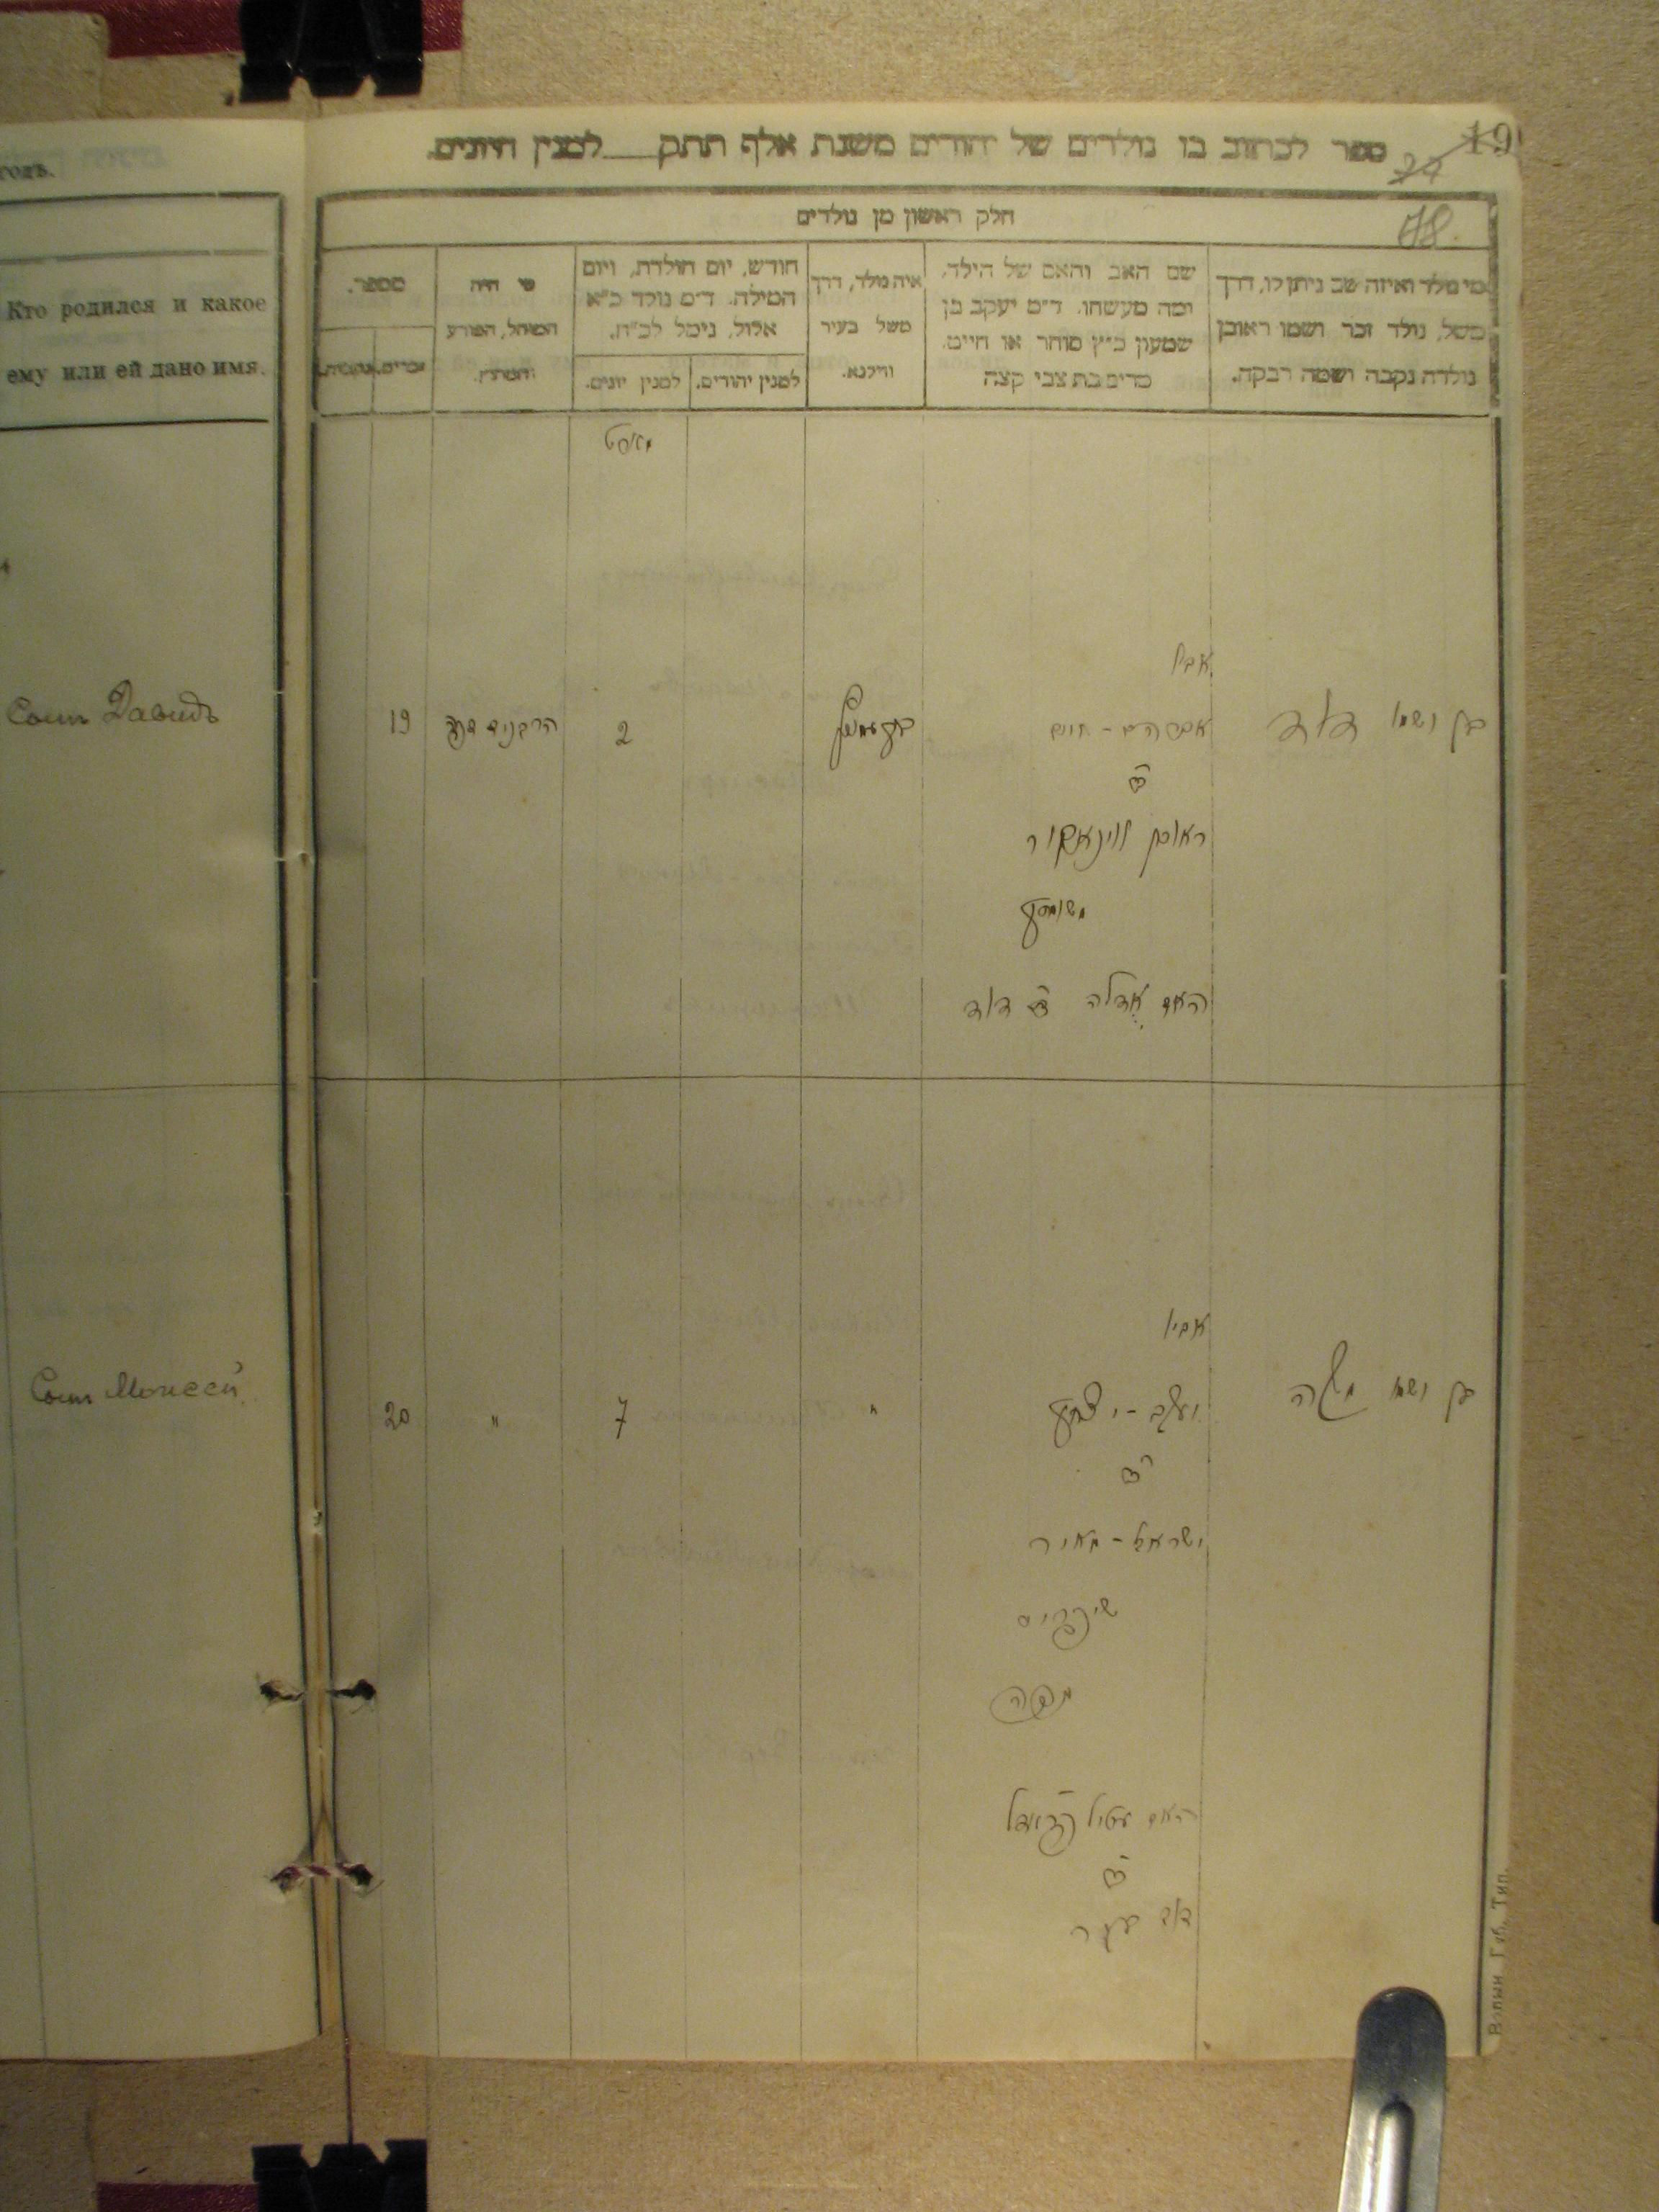 годъ.
Кто родился и какое
ему или ей дано имя.
Сынъ Давидъ
Сынъ Моисей
19
ספר לכתוב בו נולדים של יהודים משנת אלף תתק לטנין היונים.
24
48.
חלק ראשון מן נולדים
מי נולד ואיזה שם ניתן לו, דרך
משל, נולד זכר ושמו ראובן
נולדה נקבה ושמה רבקה.
שם האב והאם של הילד,
ומה מעשהו. ד״מ יעקב בן
שמעון כ״ץ סוחר או חייט.
מרים בת צבי קצה
איה נולד, דרך
משל בעיר
ווילנא.
חודש, יום הולדת, ויום
המילה. ד״מ נולד כ״א
אלול, נימל לכ״ח.
למנין יהודים.
למנין יונים.
מי היה
המוהל, הפורע
והמוצץ.
מספר.
זכרים.
נקבות.
מארט
בן ושמו דוד
אביו
אברהם - חיים
ב״ר
ראובן ווינאקור
האם אדלה ב״ר דוד
2
19
בן ושמו משה
אביו
יעקב - יצחק
ב״ר
ישראל - מאיר
האם
ב״ר
דוד
"
7
"
20
Волын. Губ. Тип.